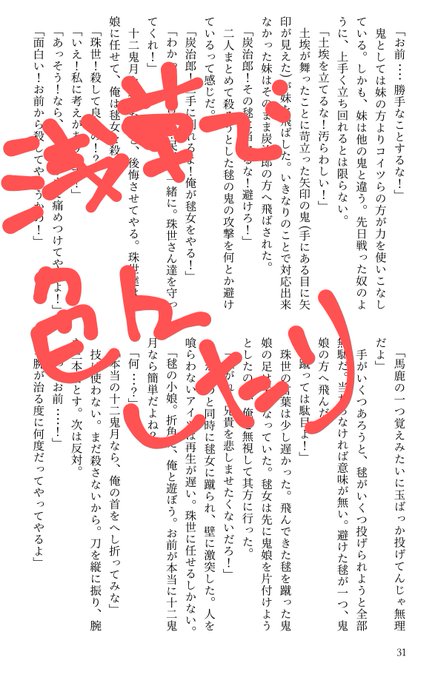 「お前‥‥勝手なことするな！」
鬼としては妹の方よりコイツらの方が力を使いこなし
ている。しかも、妹は他の鬼と違う。先日戦った奴のよ
うに、上手く立ち回れるとは限らない。
「土埃を立てるな！汚らわしい！」
土埃が舞ったことに苛立った矢印の鬼（手にある目に矢
印が見えた）が妹を飛ばした。いきなりのことで対応出来
なかった妹はそのまま炭治郎の方へ飛ばされた。
「炭治郎！その毬 るな！避けろ！」
二人まとめて殺 うとした毬の鬼の攻撃を何とか避け
ているって感じだ。
「炭治郎！ 手に れるよ！俺が毬女をやる！」
「わか 緒に。珠世さん達を守っ
てくれ！」
十二鬼月 と、後悔させてやる。珠世
娘に任せて、俺は毬女を殺
「珠世！殺して良 の！？
「いえ！私に考えがあ
「あっそう！なら、 て痛めつけてや よ！」
「面白い！お前から殺してや う の！」
「馬鹿の一つ覚えみたいに玉ばっか投げてんじゃ無理
だよ」
手がいくつあろうと、毬がいくつ投げられようと全部
無駄だ。当 なければ意味が無い。避けた毬が一つ、鬼
娘の方へ飛んだ
「 蹴っては駄目よ！」
珠世の 葉は少し遅かった。飛んできた毬を蹴った鬼
娘の足は なっていた。毬女は先に鬼娘を片付けよう
としたの 俺 無視して其方に行った。
「 がれ 兄貴を悲しませたくないだろ！」
っと同時に毬女に蹴られ、壁に激突した。人を
喰らわないアイ は再生が遅い。珠世に任せるしかない。
「毬の小娘。折角 俺と遊ぼう。お前が本当に十二鬼
月なら簡単だよね？
「何‥？」
本当の十二鬼月なら、俺の首をへし折ってみな」
技 使わない。まだ殺さないから。刀を縦に振り、腕
二本 とす。次は反対。
お前‥‥！」
勝が治る度に何度だってやってやるよ」
31
浅草で
したり